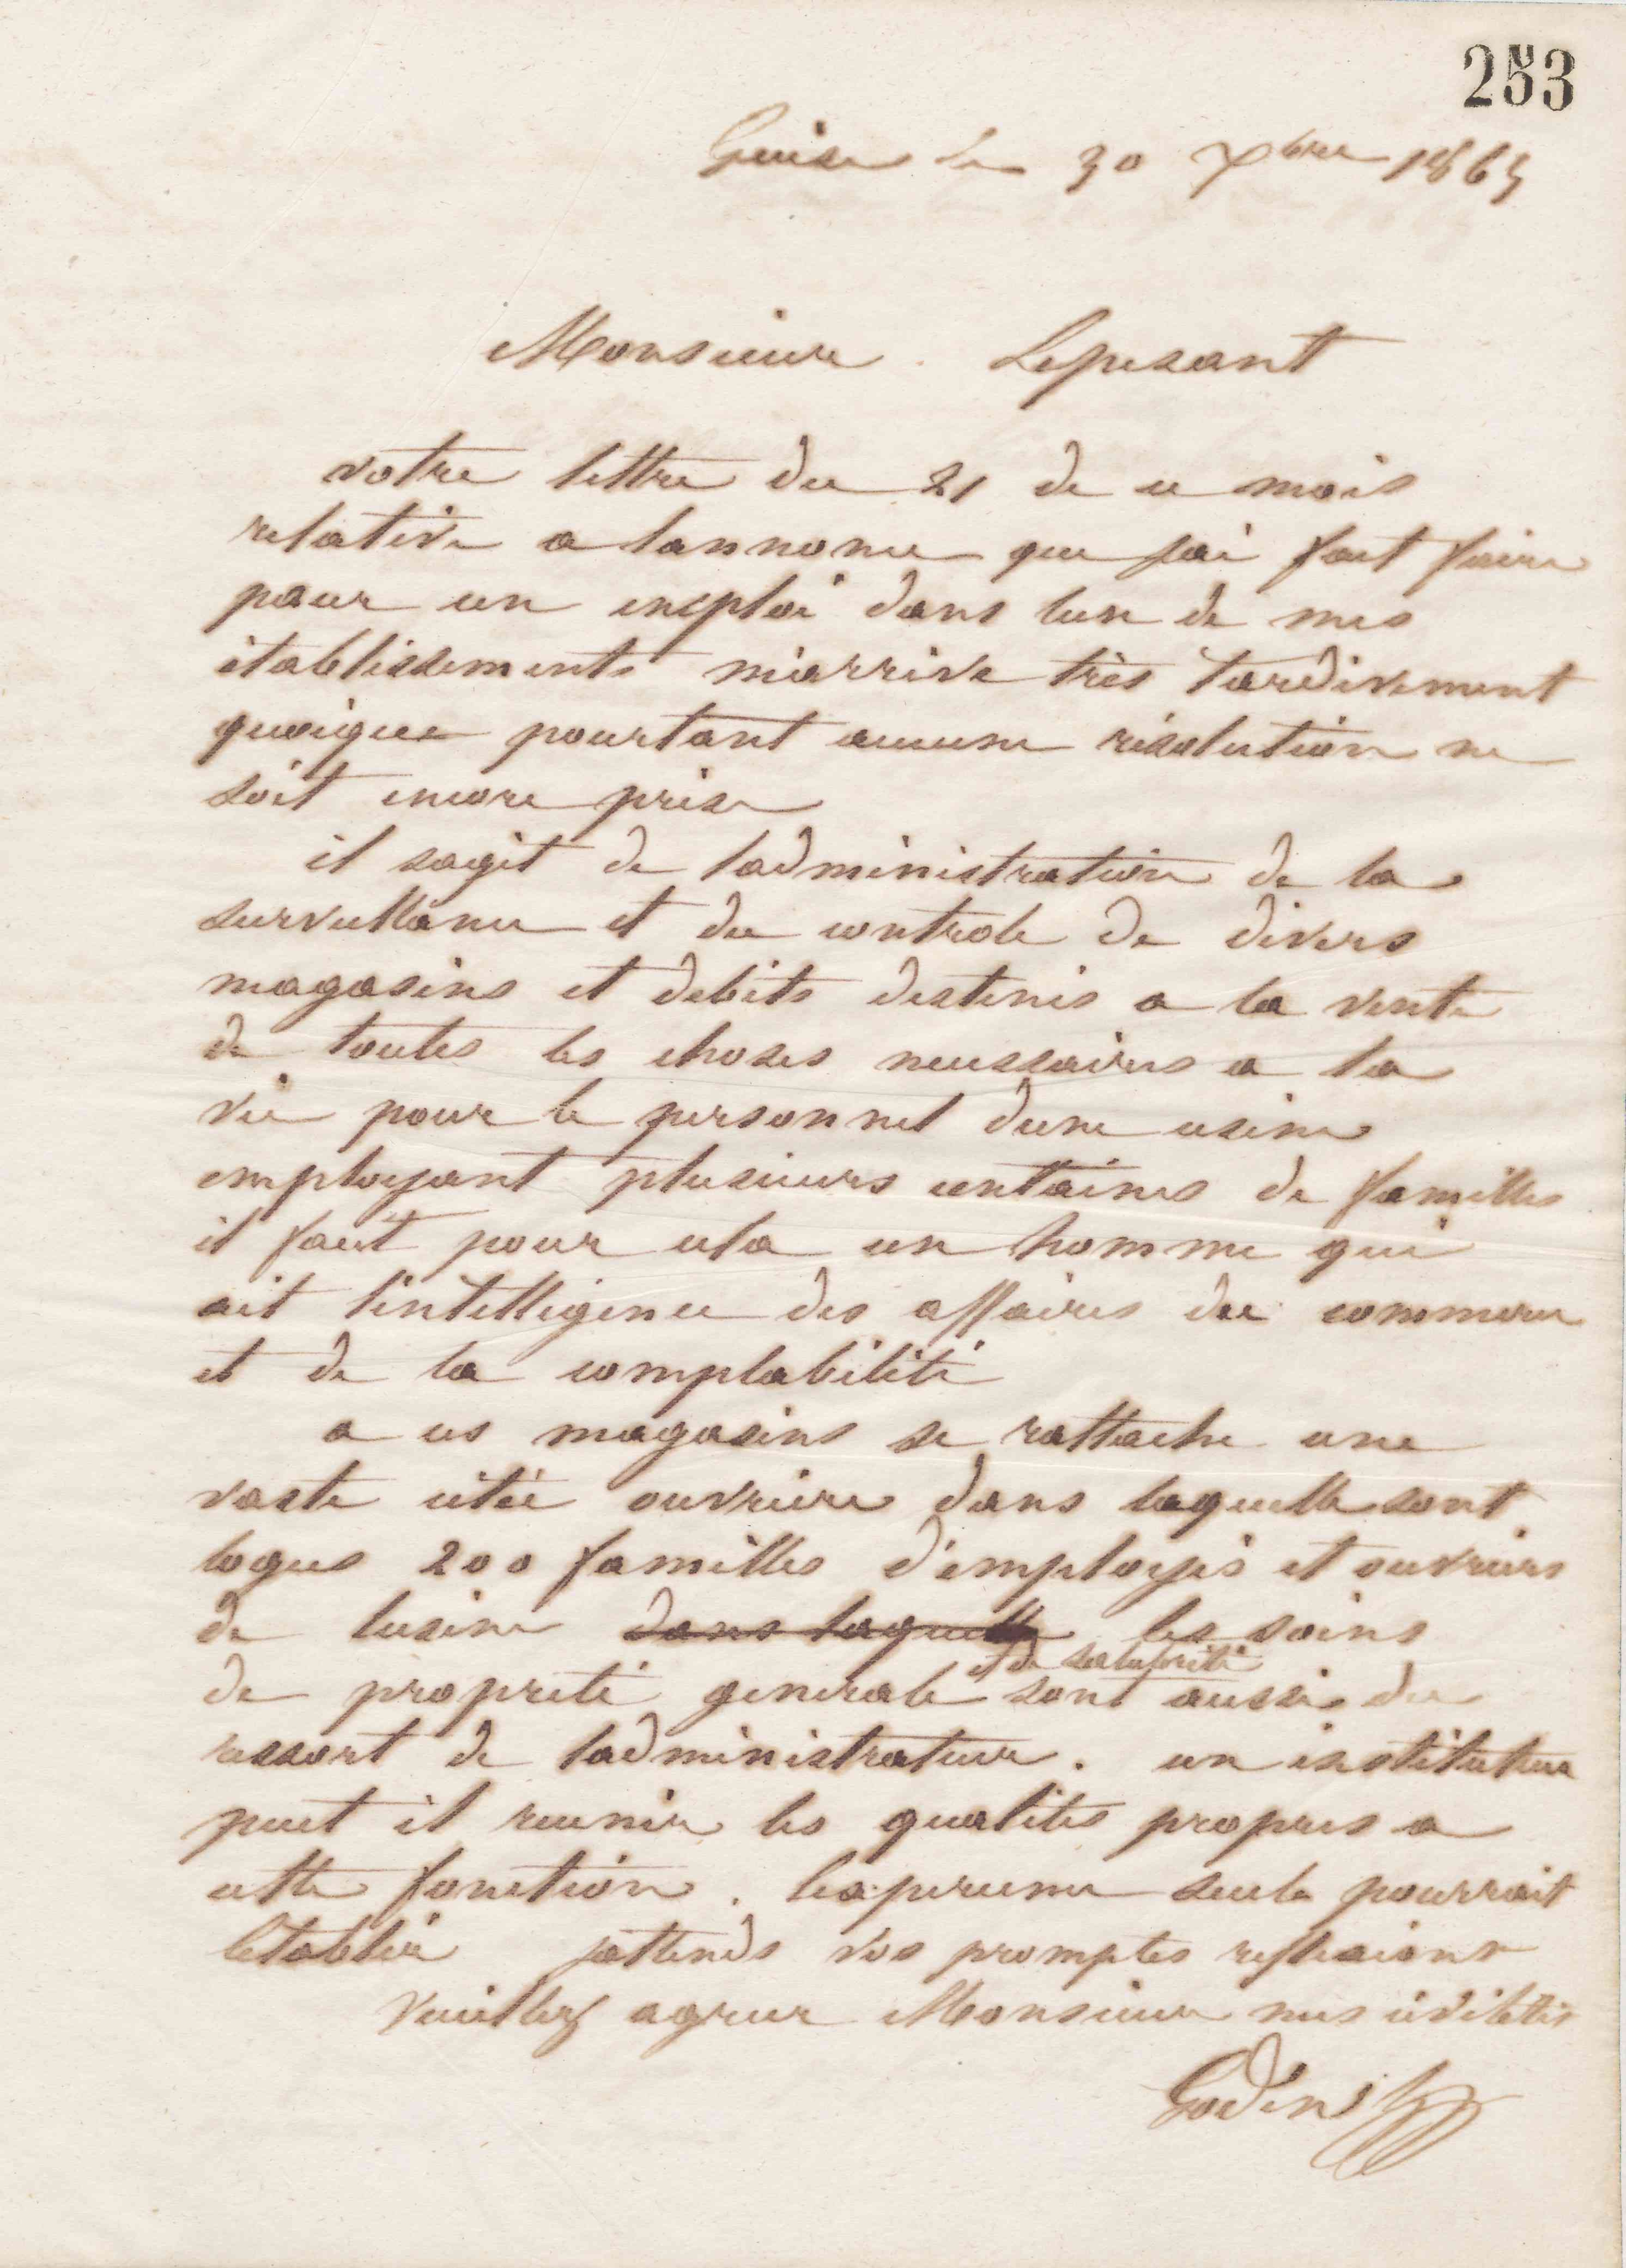 253
Guise le 30 Xbre 1865
Monsieur Lepesant
votre lettre du 21 de ce mois
relative a lannonce que jai fait faire
pour un emploi dans lun de mes
établissements m'arrive très tardivement
quoique pourtant aucune résolution ne
soit encore prise
il sagit de ladministration de la
surveillance et du controle de divers
magasins et debits destinés a la vente
de toutes les choses necessaires a la
vie pour le personnel dune usine
employant plusieurs centaines de familles
il faut pour cela un homme qui
ait l'intelligence des affaires du commerce
et de la comptabilité
a ces magasins se rattache une
vaste citée ouvriere dans laquelle sont
logés 200 familles d'employés et ouvriers
de lusine dans laquelle les soins
de propreté generale et de salubrité sont aussi du
ressort de ladministrateur. un instituteur
peut il reunir les qualités propres a
cette fonction. lexperience seule pourrait
letablir jattends vos promptes reflexions
Veuillez agreer Monsieur mes civilités
Godin